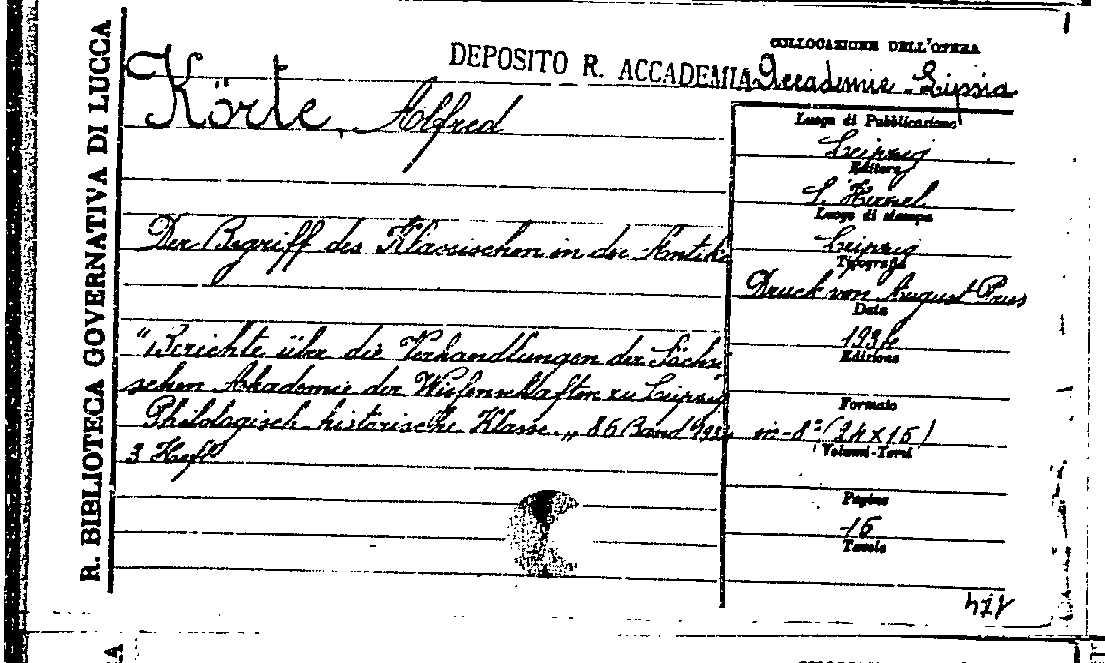 R. BIBLIOTECA GOVERNATIVA DI LUCCA
DEPOSITO R. ACCADEMIA
COLLOCAZIONE DELL'OPERA
Accademie-Lipsia
Körte, Alfred
Der Begriff des Klassischen in der Antike
"Berichte über die Verhandlungen der Sächsi
schen Akademie der Wissenschaften zu Leipzig
Philologisch-historische Klasse" 86 Band 1934
3 Heft
Luogo di Pubblicazione
Leipzig
Editore
S. Hirzel
Luogo di stampa
Leipzig
Tipografia
Druck von August Pries
Data
1934
Edizione
Formato
in-8° (24x15)
Volumi-Tomi
Pagine
15
Tavole